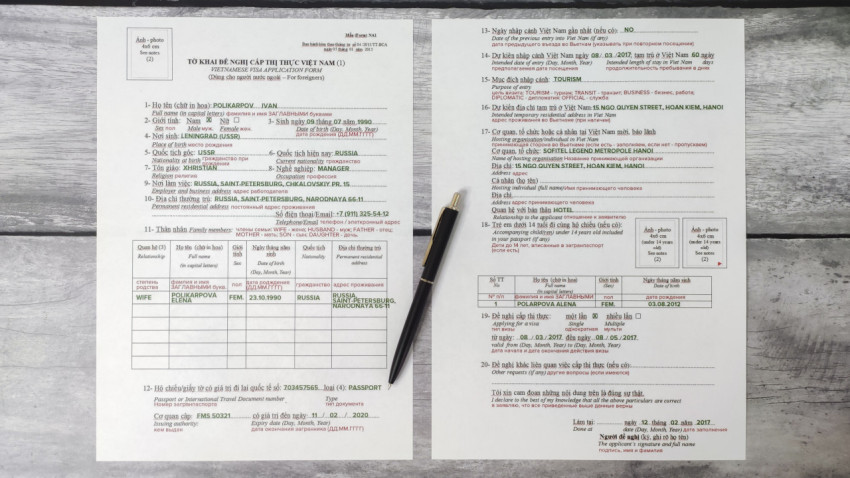 Mẫu (Form) NA1
Ảnh - photo
4x6 cm
See notes
(2)
TỜ KHAI ĐỀ NGHỊ CẤP THỊ THỰC VIỆT NAM (1)
VIETNAMESE VISA APPLICATION FORM
(Dùng cho người nước ngoài – For foreigners)
1- Họ tên (chữ in hoa): POLIKARPOV IVAN
Full name (in capital letters) фамилия и имя ЗАГЛАВНЫМИ буквами
2- Giới tính: Nam ☒ Nữ ☐ 3- Sinh ngày 09 tháng 07 năm 1990
Sex пол Male муж. Female жен. Date of birth (Day, Month, Year)
дата рождения (ДД.ММ.ГГГГ)
4- Nơi sinh: LENINGRAD (USSR)
Place of birth место рождения
5- Quốc tịch gốc: USSR 6- Quốc tịch hiện nay: RUSSIA
Nationality at birth гражданство при рождении Current nationality гражданство
7- Tôn giáo: XHRISTIAN 8- Nghề nghiệp: MANAGER
Religion религия Occupation профессия
9- Nơi làm việc: RUSSIA, SAINT-PETERSBURG, CHKALOVSKIY PR, 15
Employer and business address адрес работодателя
10- Địa chỉ thường trú: RUSSIA, SAINT-PETERSBURG, NARODNAYA 66-11
Permanent residential address постоянный адрес проживания
Số điện thoại/Email: +7 (911) 325-54-12
Telephone/Email телефон / электронный адрес
11- Thân nhân Family members: члены семьи: WIFE - жена; HUSBAND - муж; FATHER - отец;
MOTHER - мать; SON - сын; DAUGHTER - дочь.
Quan hệ (3) Họ tên (chữ in hoa) Giới tính Ngày tháng năm sinh Quốc tịch Địa chỉ thường trú
Relationship Full name (in capital letters) Sex Date of birth (Day, Month, Year) Nationality Permanent residential address
степень родства фамилия и имя ЗАГЛАВНЫМИ букв. пол дата рождения (ДД.ММ.ГГГГ) гражданство адрес проживания
WIFE POLIKARPOVA ELENA FEM. 23.10.1990 RUSSIA RUSSIA, SAINT-PETERSBURG, NARODNAYA 66-11
12- Hộ chiếu/giấy tờ có giá trị đi lại quốc tế số: 703457565 loại (4): PASSPORT
Passport or International Travel Document number Type
Номер загранпаспорта тип документа
Cơ quan cấp: FMS 50321 có giá trị đến ngày 11 / 02 / 2020
Issuing authority: Expiry date (Day, Month, Year)
кем выдан дата окончания загранника (ДД.ММ.ГГГГ)
13- Ngày nhập cảnh Việt Nam gần nhất (nếu có): NO
Date of the previous entry into Viet Nam (if any)
дата предыдущего въезда во Вьетнам (указывать при повторном посещении)
14- Dự kiến nhập cảnh Việt Nam ngày 08 / 03 / 2017, tạm trú ở Việt Nam 60 ngày
Intended date of entry (Day, Month, Year) Intended length of stay in Viet Nam days
предполагаемая дата посещения продолжительность пребывания в днях
15- Mục đích nhập cảnh: TOURISM
Purpose of entry
цель визита: TOURISM - туризм; TRANSIT - транзит; BUSINESS - бизнес, работа;
DIPLOMATIC - дипломатия; OFFICIAL - служба
16- Dự kiến địa chỉ tạm trú ở Việt Nam 15 NGO QUYEN STREET, HOAN KIEM, HANOI
Intended temporary residential address in Viet Nam
адрес проживания во Вьетнаме (при наличии)
17- Cơ quan, tổ chức hoặc cá nhân tại Việt Nam mời, bảo lãnh
Hosting organisation/individual in Viet Nam
принимающая сторона во Вьетнаме (если есть - заполняем, если нет - пропускаем)
Cơ quan, tổ chức: SOFITEL LEGEND METROPOLE HANOI
Name of hosting organisation Название принимающей организации
Địa chỉ: 15 NGO QUYEN STREET, HOAN KIEM, HANOI
Address адрес
Cá nhân (họ tên)
Hosting individual (full name) Имя принимающего человека
Địa chỉ
Address адрес принимающего человека
Quan hệ với bản thân HOTEL
Relationship to the applicant отношение к заявителю
18- Trẻ em dưới 14 tuổi đi cùng hộ chiếu (nếu có):
Accompanying child(ren) under 14 years old included
in your passport (if any)
Дети до 14 лет, вписанные в загранпаспорт
(если есть)
Ảnh - photo
4x6 cm
(under 14 years old)
See notes
(2)
Ảnh - photo
4x6 cm
(under 14 years old)
See notes
(2)
Số TT Họ tên (chữ in hoa) Giới tính Ngày tháng năm sinh
No Full name (in capital letters) (Sex) Date of birth
№ п/п фамилия и имя ЗАГЛАВНЫМИ пол дата рождения
1 POLARPOVA ALENA FEM. 03.08.2012
19- Đề nghị cấp thị thực: một lần ☒ nhiều lần ☐
Applying for a visa Single Multiple
тип визы однократная мульти
từ ngày: 08 / 03 / 2017 đến ngày 08 / 05 / 2017
valid from (Day, Month, Year) to (Day, Month, Year)
дата начала и дата окончания действия визы
20- Đề nghị khác liên quan việc cấp thị thực (nếu có):
Other requests (if any) другие вопросы (если имеются)
Tôi xin cam đoan những nội dung trên là đúng sự thật.
I declare to the best of my knowledge that all the above particulars are correct
я заявляю, что все приведенный выше данные верны
Làm tại: ngày 12 tháng 02 năm 2017
Done at date (Day, Month, Year) дата заполнения
Người đề nghị (ký, ghi rõ họ tên)
The applicant's signature and full name
подпись, имя и фамилия